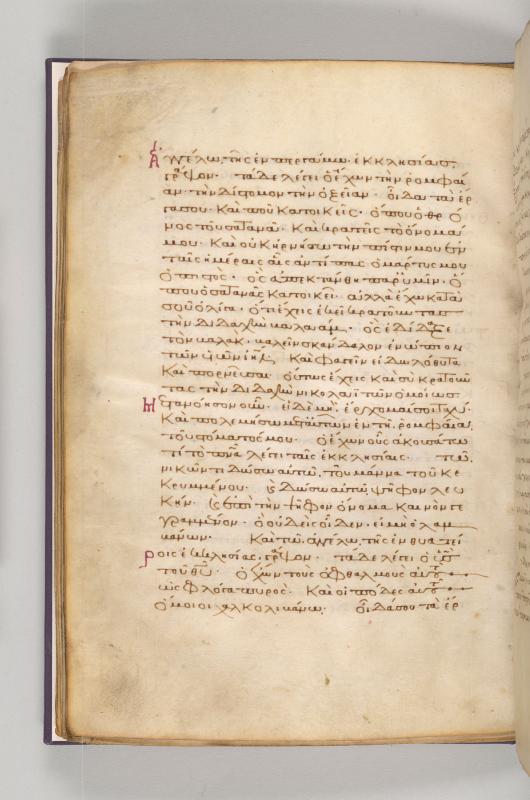 Ἀγγέλω, τῆς ἐν περγάμω, ἐκκλησίας,
γρᾶψον· τάδε λέγει ὁ ἔχων τὴν ῥομφαί
αν τὴν δίστομον τὴν ὀξεῖαν· οἶδα τὰ ἔρ
γα σου καὶ ποῦ κατοικεῖς· ὅπου ὁ θρό
νος τοῦ σατανᾶ· καὶ κρατεῖς τὸ ὄνομά
μου· καὶ οὐκ ἠρνήσω τὴν πίστιν μου ἐν
ταῖς ἡμέραις αἷς ἀντίπας ὁ μάρτυς μου
ὁ πιστός· ὃς ἀπεκτάνθη παρ' ὑμῖν· ὅ
που ὁ σατανᾶς κατοικεῖ· ἀλλὰ ἔχω κατὰ
σοῦ ὀλίγα· ὅτι ἔχεις ἐκεῖ κρατοῦντας
τὴν διδαχὴν βαλαάμ· ὃς ἐδίδαξε
τὸν βαλὰκ, βαλεῖν σκάνδαλον ἐνώπιον
τῶν υἱῶν ἰηλ καὶ φαγεῖν εἰδωλόθυτα
καὶ πορνεῦσαι οὕτως ἔχεις καὶ σὺ κρατοῦν
τας τὴν διδαχὴν νικολαϊτῶν ὁμοίως
μετανόησον οὖν· εἰ δὲ μὴ, ἔρχομαί σοι ταχύ·
καὶ πολεμήσω μετ' αὐτῶν ἐν τῆ, ῥομφαία,
τοῦ στόματός μου· ὁ ἔχων οὖς ἀκουσάτω
τί τὸ πνα λέγει ταῖς ἐκκλησίαις· τῶ,
νικῶντι δώσω αὐτῶ, τοῦ μάννα τοῦ κε
κρυμμένου· καὶ δώσω αὐτῶ, ψῆφον λευ
κήν· καὶ ἐπὶ τὴν ψῆφον ὄνομα καινὸν γε
γραμμένον· ὃ οὐδεὶς οἶδεν, εἰ μὴ ὁ λαμ
βάνων· καὶ τῶ, ἀγγέλω, τῆς ἐν θυατεί
ροις ἐκκλησίας, γρᾶψον· τάδε λέγει ὁ υς
τοῦ θυ· ὁ ἔχων τοὺς ὀφθαλμοὺς αὐτοῦ
ὡς φλόγα πυρός· καὶ οἱ πόδες αὐτοῦ
ὅμοιοι χαλκολιβάνω· οἶδά σου τὰ ἔρ